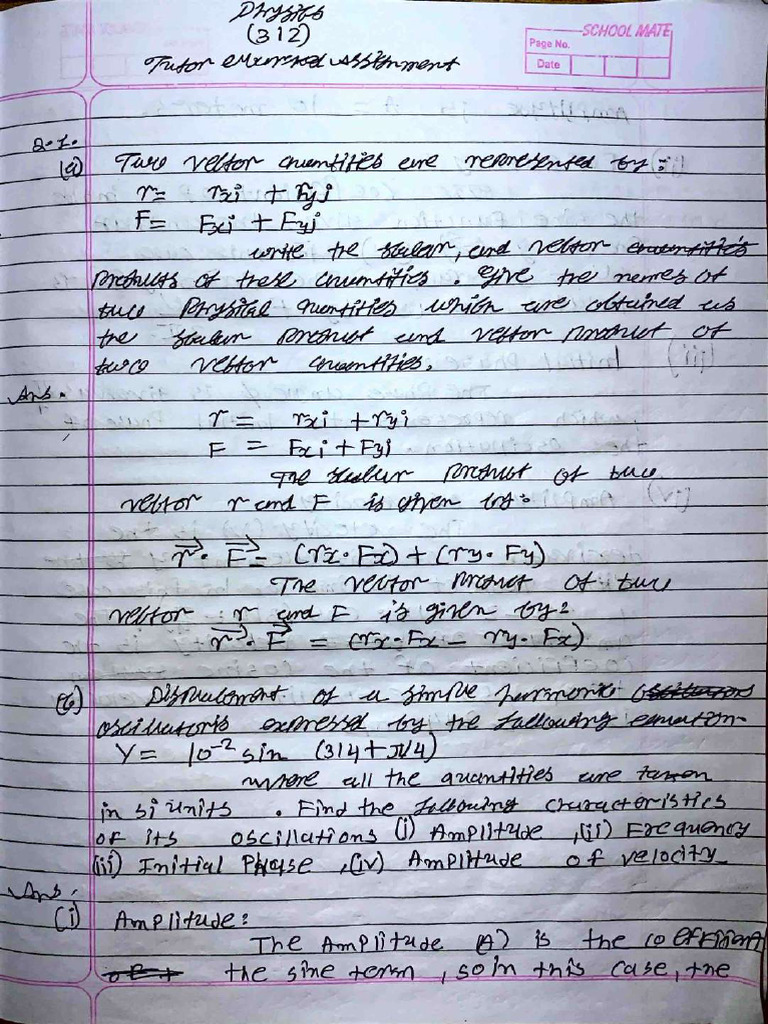 Physics
(312)
Tutor Marked Assignment
SCHOOL MATE
Page No.
Date
2.1.
(a) Two vector quantities are represented by:
r= rxi + ryj
F= Fxi + Fyj
write the scalar, and vector quantities
products of these quantities. Give the names of
two Physical quantities which are obtained as
the scalar product and vector product of
two vector quantities.
Ans.
r = rxi + ryj
F = Fxi + Fyj
The scalar product of two
vector r and F is given by:
r⃗ · F⃗ = (rx·Fx) + (ry·Fy)
The vector product of two
vector r and F is given by:
r⃗ · F⃗ = (rx·Fx - ry·Fx)
(b) Displacement of a simple harmonic
oscillator is expressed by the following equation-
Y= 10⁻² sin (314+π/4)
where all the quantities are taken
in si units . Find the following characteristics
of its oscillations (i) Amplitude ,(ii) Frequency
(iii) Initial Phase ,(iv) Amplitude of velocity
Ans.
(i) Amplitude:
The Amplitude (A) is the coefficient
the sine term, so in this case, the